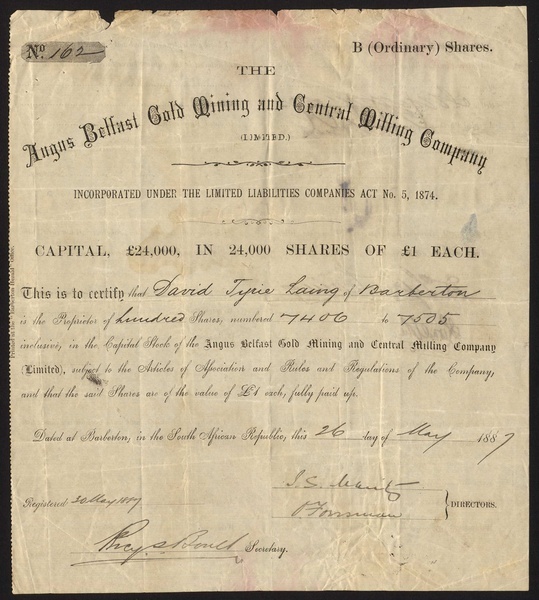 No. 162
B (Ordinary) Shares.
THE
Angus Belfast Gold Mining and Central Milling Company
(LIMITED.)
INCORPORATED UNDER THE LIMITED LIABILITIES COMPANIES ACT No. 5, 1874.
CAPITAL, £24,000, IN 24,000 SHARES OF £1 EACH.
This is to certify that David Tyrie Laing of Barberton
is the Proprietor of hundred Shares, numbered 7406 to 7505
inclusive, in the Capital Stock of the Angus Belfast Gold Mining and Central Milling Company
(Limited), subject to the Articles of Association and Rules and Regulations of the Company,
and that the said Shares are of the value of £1 each, fully paid up.
Dated at Barberton, in the South African Republic, this 26 day of May 1887
DIRECTORS.
Registered 30 May 1887
Secretary.